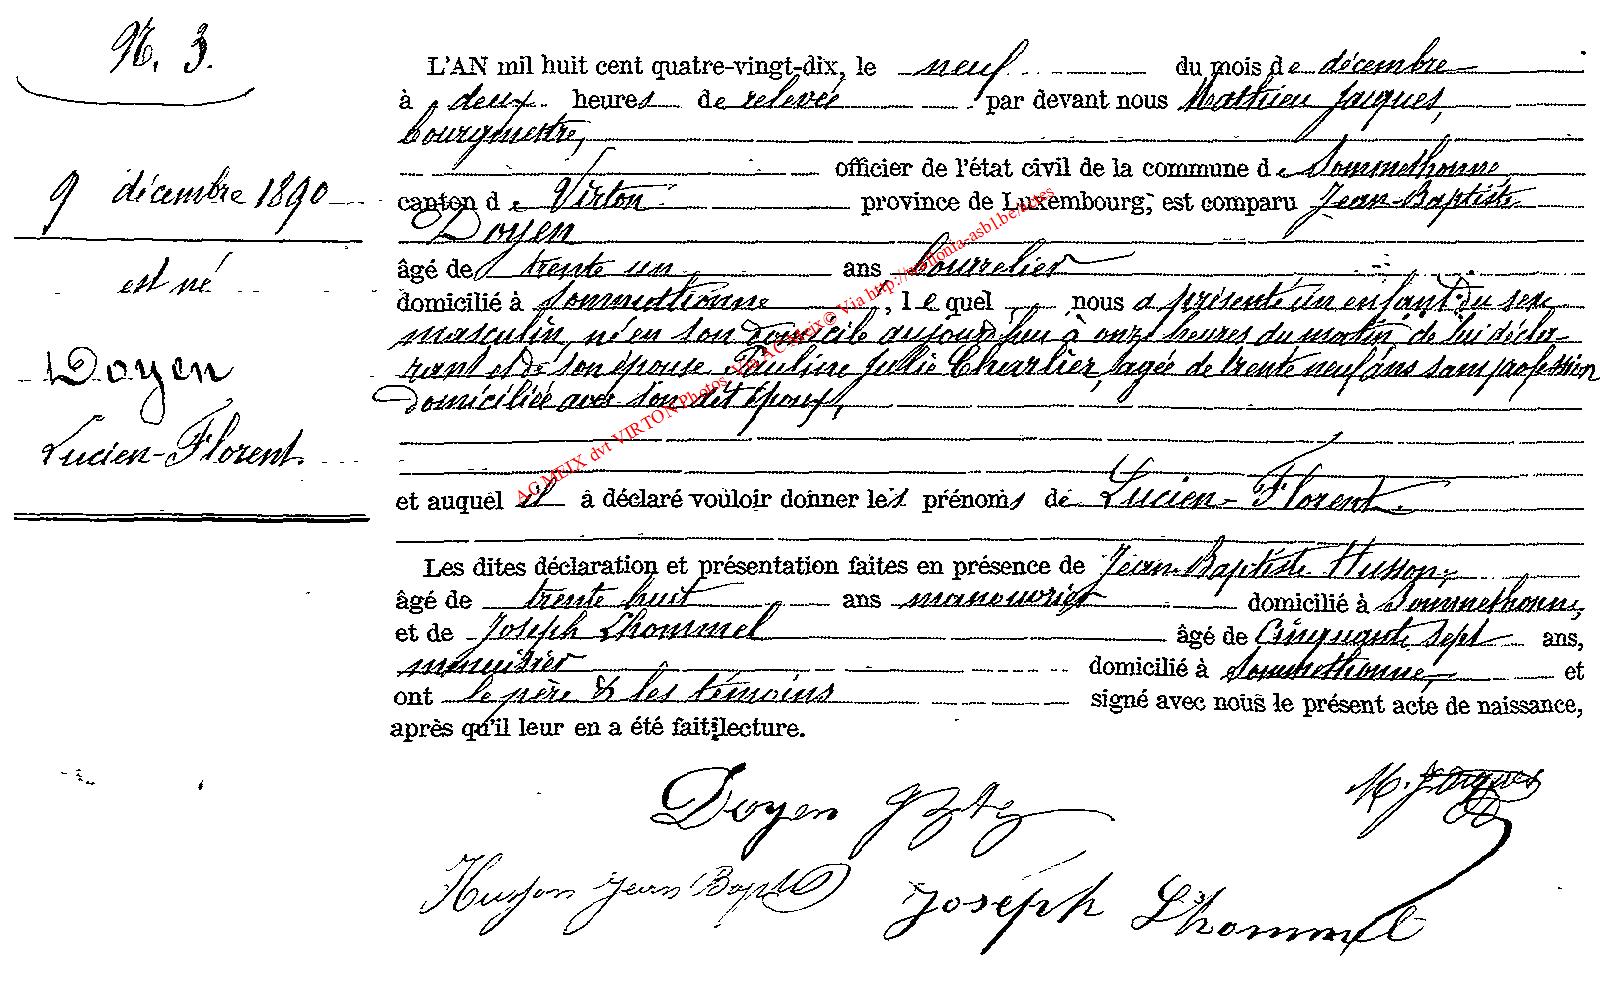 N. 3.
9 décembre 1890
est né
Doyen
Lucien-Florent.
L'AN mil huit cent quatre-vingt-dix, le neuf du mois de décembre
à deux heures de relevée par devant nous Mathieu Jacques,
bourgmestre,
officier de l'état civil de la commune de Sommethonne
canton de Virton province de Luxembourg, est comparu Jean-Baptiste
Doyen
âgé de trente un ans bourrelier
domicilié à Sommethonne, lequel nous a présenté un enfant du sexe
masculin, né en son domicile aujourd'hui à onze heures du matin, de lui décla-
rant et de son épouse Pauline Julie Charlier, agée de trente neuf ans sans profession
domiciliée avec son dit époux,
et auquel il a déclaré vouloir donner les prénoms de Lucien-Florent.
Les dites déclaration et présentation faites en présence de Jean-Baptiste Husson,
âgé de trente huit ans manouvrier domicilié à Sommethonne,
et de Joseph Lhommel âgé de Cinquante sept ans,
menuisier domicilié à Sommethonne, et
ont le père & les témoins signé avec nous le présent acte de naissance,
après qu'il leur en a été fait lecture.
Doyen JBte
M. Jacques
Husson Jean Bapt
Joseph Lhommel
AC MEIX dvt VIRTON Photos